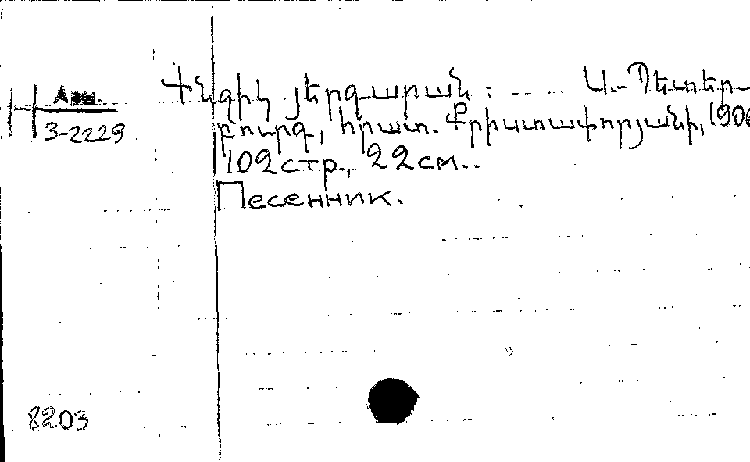 Арм.
3-2229
Փնջիկ յերգարան : ..... Ս-Պետեր-
բուրգ, հրատ. Քրիստափորյանի, 190
102 стр., 22 см..
Песенник.
8203